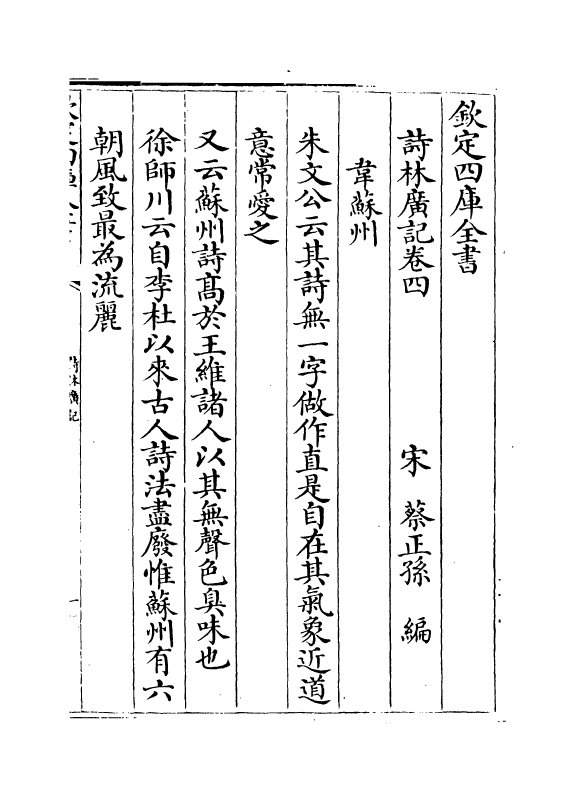 欽定四庫全書
詩林廣記卷四　　　宋　蔡正孫　編
韋蘇州
朱文公云其詩無一字做作直是自在其氣象近道
意常愛之
又云蘇州詩髙於王維諸人以其無聲色臭味也
徐師川云自李杜以來古人詩法盡廢惟蘇州有六
朝風致最為流麗
詩林廣記
一